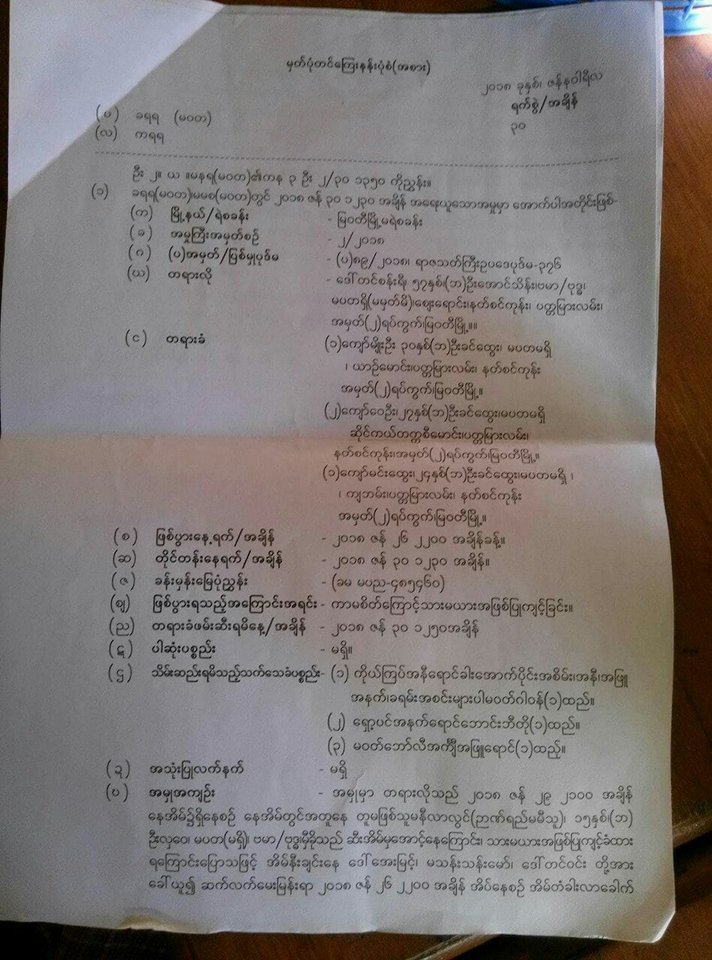 မှတ်ပုံတင်ကြေးနန်းပုံစံ(အစား)
၂၀၁၈ ခုနှစ်၊ ဇန်နဝါရီလ
ရက်စွဲ/အချိန်
(ပ) ခရရ (မဝတ)
၃၀
(လ) ကရရ
ဦး ၂။ ယ ။မနရ(မဝတ)၏ကန ၃ ဦး ၂/၃၀ ၁၃၅၀ ကိုညွှန်း။
(၁) ခရရ(မဝတ)၊မမစ(မဝတ)တွင် ၂၀၁၈ ဇန် ၃၀ ၁၂၃၀ အချိန် အရေးယူသောအမှုမှာ အောက်ပါအတိုင်းဖြစ်-
(က) မြို့နယ်/ရဲစခန်း - မြဝတီမြို့မရဲစခန်း
(ခ) အမှုကြီးအမှတ်စဉ် - ၂/၂၀၁၈
(ဂ) (ပ)အမှတ်/ပြစ်မှုပုဒ်မ - (ပ)၈၉/၂၀၁၈၊ ရာဇသတ်ကြီးဥပဒေပုဒ်မ-၃၇၆
(ဃ) တရားလို - ဒေါ်တင်စန်းရီ၊ ၅၇နှစ်၊(ဘ)ဦးအောင်သိန်း၊ဗမာ/ဗုဒ္ဓ၊
မပတရှိ(မမှတ်မိ)ဈေးရောင်း၊နတ်စင်ကုန်း၊ ပတ္တမြားလမ်း၊
အမှတ်(၂)ရပ်ကွက်၊မြဝတီမြို့။။
(င) တရားခံ (၁)ကျော်မျိုးဦး ၃၀နှစ်(ဘ)ဦးခင်ထွေး၊ မပတမရှိ
၊ ယာဉ်မောင်း၊ပတ္တမြားလမ်း၊ နတ်စင်ကုန်း
အမှတ်(၂)ရပ်ကွက်၊မြဝတီမြို့။
(၂)ကျော်ဝေဦး၊၂၇နှစ်(ဘ)ဦးခင်ထွေး၊မပတမရှိ
ဆိုင်ကယ်တက္ကစီမောင်း၊ပတ္တမြားလမ်း၊
နတ်စင်ကုန်း၊အမှတ်(၂)ရပ်ကွက်၊မြဝတီမြို့။
(၁)ကျော်မင်းထွေး၊၂၄နှစ်(ဘ)ဦးခင်ထွေး၊မပတမရှိ ၊
၊ ကျဘမ်း၊ပတ္တမြားလမ်း၊ နတ်စင်ကုန်း
အမှတ်(၂)ရပ်ကွက်၊မြဝတီမြို့။
(စ) ဖြစ်ပွားနေ့ရက်/အချိန် - ၂၀၁၈ ဇန် ၂၆ ၂၂၀၀ အချိန်ခန့်။
(ဆ) တိုင်တန်းနေရက်/အချိန် - ၂၀၁၈ ဇန် ၃၀ ၁၂၃၀ အချိန်။
(ဇ) ခန်းမှန်းမြေပုံညွှန်း - (ခမ မပည-၄၈၅၄၆၀)
(ဈ) ဖြစ်ပွားရသည့်အကြောင်းအရင်း - ကာမစိတ်ကြောင့်သားမယားအဖြစ်ပြုကျင့်ခြင်း။
(ည) တရားခံဖမ်းဆီးရမိနေ့/အချိန် - ၂၀၁၈ ဇန် ၃၀ ၁၂၅၀အချိန်
(ဋ) ပါဆုံးပစ္စည်း - မရှိ။
(ဌ) သိမ်းဆည်းရမိသည့်သက်သေခံပစ္စည်း- (၁) ကိုယ်ကြပ်အနီရောင်ခါးအောက်ပိုင်းအစိမ်း၊အနီ၊အဖြူ
အနက်၊ခရမ်းအစင်းများပါမဝတ်ဂါဝန်(၁)ထည်။
(၂) ရှော့ပင်အနက်ရောင်ဘောင်းဘီတို(၁)ထည်။
(၃) မဝတ်ဘော်လီအင်္ကျီအဖြူရောင်(၁)ထည့်။
(ဍ) အသုံးပြုလက်နက် - မရှိ
(ဎ) အမှုအကျဉ်း - အမှုမှာ တရားလိုသည် ၂၀၁၈ ဇန် ၂၉ ၂၁၀၀ အချိန်
နေအိမ်၌ရှိနေစဉ် နေအိမ်တွင်အတူနေ တူမဖြစ်သူမနီလာလွင်(ဉာဏ်ရည်မမီသူ)၊ ၁၅နှစ်၊(ဘ)
ဦးလှဝေ၊ မပတ(မရှိ)၊ ဗမာ/ဗုဒ္ဓ၊မှီခိုသည် ဆီးအိမ်မှအောင့်နေကြောင်း၊ သားမယားအဖြစ်ပြုကျင့်ခံထား
ရကြောင်းပြောသဖြင့် အိမ်နီးချင်းနေ ဒေါ်အေးမြင့်၊ မသန်းသန်းမော်၊ ဒေါ်တင်ဝင်း တို့အား
ခေါ်ယူ၍ ဆက်လက်မေးမြန်းရာ ၂၀၁၈ ဇန် ၂၆ ၂၂၀၀ အချိန် အိပ်နေစဉ် အိမ်တံခါးလာခေါက်